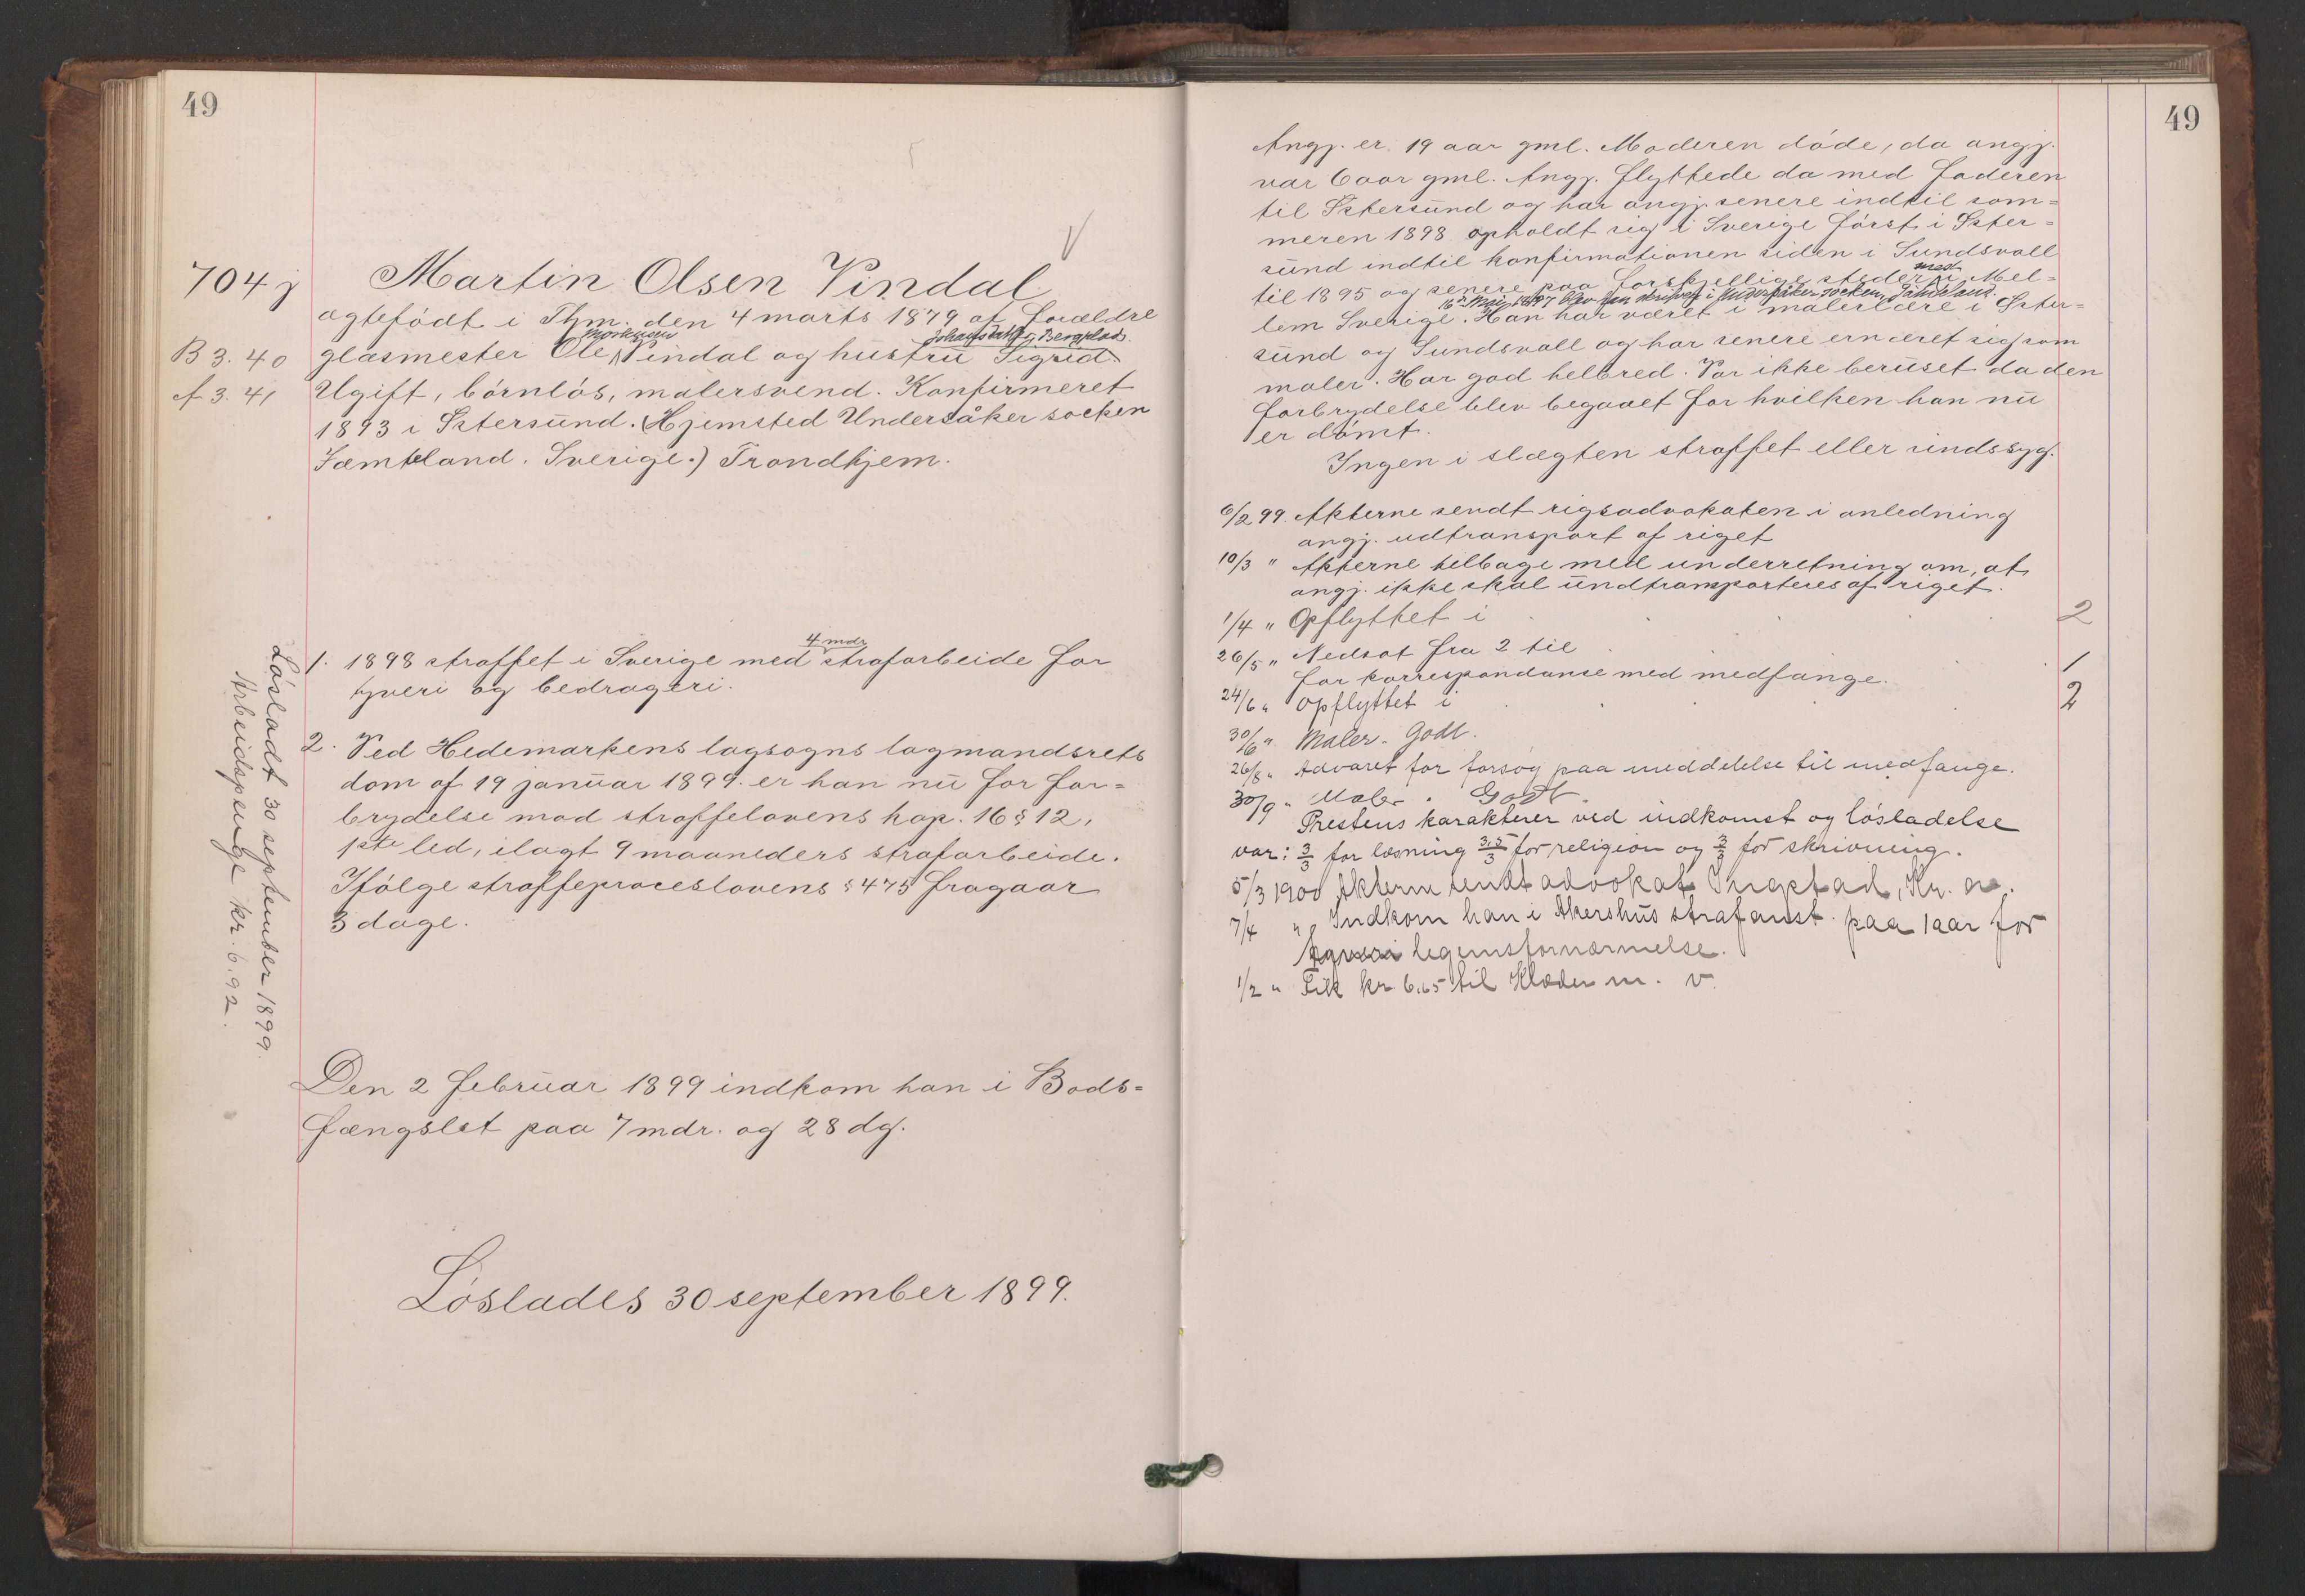 49
704 j
Martin Olsen Vindal
ægtefödt i Thm. den 4 marts 1879 af forældre
B 3. 40
glasmester Ole Morkusen Vindal og hustru Sigrid Johansdatter Bergplads.
A 3. 41
Ugift, börnlös, malersvend. Konfirmeret
1893 i Östersund. (Hjemsted Undersåker socken
Jæmteland. Sverige.) Trondhjem.
1. 1898 straffet i Sverige med 4 mdr strafarbeide for
tyveri og bedrageri.
2. Ved Hedemarkens lagsogns lagmandsrets
dom af 19 januar 1899 er han nu for for=
brydelse mod straffelovens kap. 16 § 12,
1ste led, ilagt 9 maaneders strafarbeide.
Ifölge straffeproceslovens § 475 fragaar
3 dage.
Lösladt 30 september 1899.
Arbeidspenge kr. 6.92.
Den 2 februar 1899 indkom han i Bods=
fængslet paa 7 mdr. og 28 dg.
Löslades 30 september 1899.
49
Angj. er 19 aar gml. Moderen döde, da angj.
var 6 aar gml. Angj. flyttede da med faderen
til Östersund og har angj. senere indtil som=
meren 1898 opholdt sig i Sverige först i Öster=
sund indtil konfirmationen siden i Sundsvall
til 1895 og senere paa forskjellige steder i Mel=
med
16de Maj 1897 blev han skriven i Undersåker socken, Jämtland.
lem Sverige. Han har været i malerlære i Öster=
sund og Sundsvall og har senere ernæret sig som
maler. Har god helbred. Var ikke beruset da den
forbrydelse blev begaaet for hvilken han nu
er dömt.
Ingen i slægten straffet eller sindssyg.
6/2 99. Akterne sendt rigsadvokaten i anledning
angj. udtransport af riget
10/3 " Akterne tilbage med underretning om, at
angj. ikke skal undtransporteres af riget.
1/4 " Opflyttet i . . . 2
26/5 " Nedsat fra 2 til . . 1
for korrespondanse med medfange.
24/6 " Opflyttet i . . . 2
30/6 " Maler. Godt.
26/8 " Advaret for forsøg paa meddelelse til medfange.
30/9 " Maler. Godt.
Prestens karakterer ved indkomst og lösladelse
var: 3/3 for læsning 3,5/3 for religion og 3/3 for skrivning.
5/3 1900 Akterne sendt advokat Ingstad, Kr. a.
7/4 " Indkom han i Akershus strafanst. paa 1 aar for
tyveri legemsfornærmelse.
1/2 " Fik kr 6.65 til Klæder m. v.